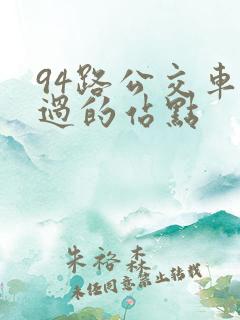 94路公交車
過的佔點
朱裕森
未经同意禁止转载